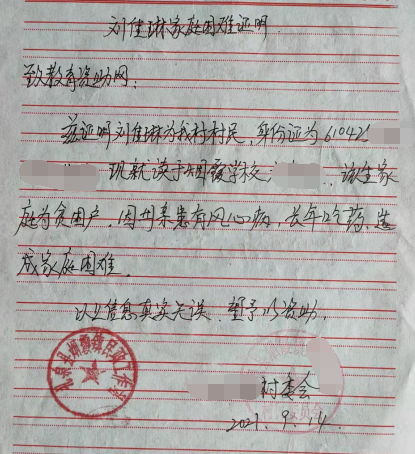 刘佳琳家庭困难证明
致教育资助网:
兹证明刘佳琳为我村村民,身份证为61042
现就读于烟霞学校,该生家
庭为贫困户,因母亲患有风心病,长年吃药,造
成家庭困难。
以上信息真实无误,望予以资助。
村委会
2021.9.14
礼泉县烟霞镇民政工作